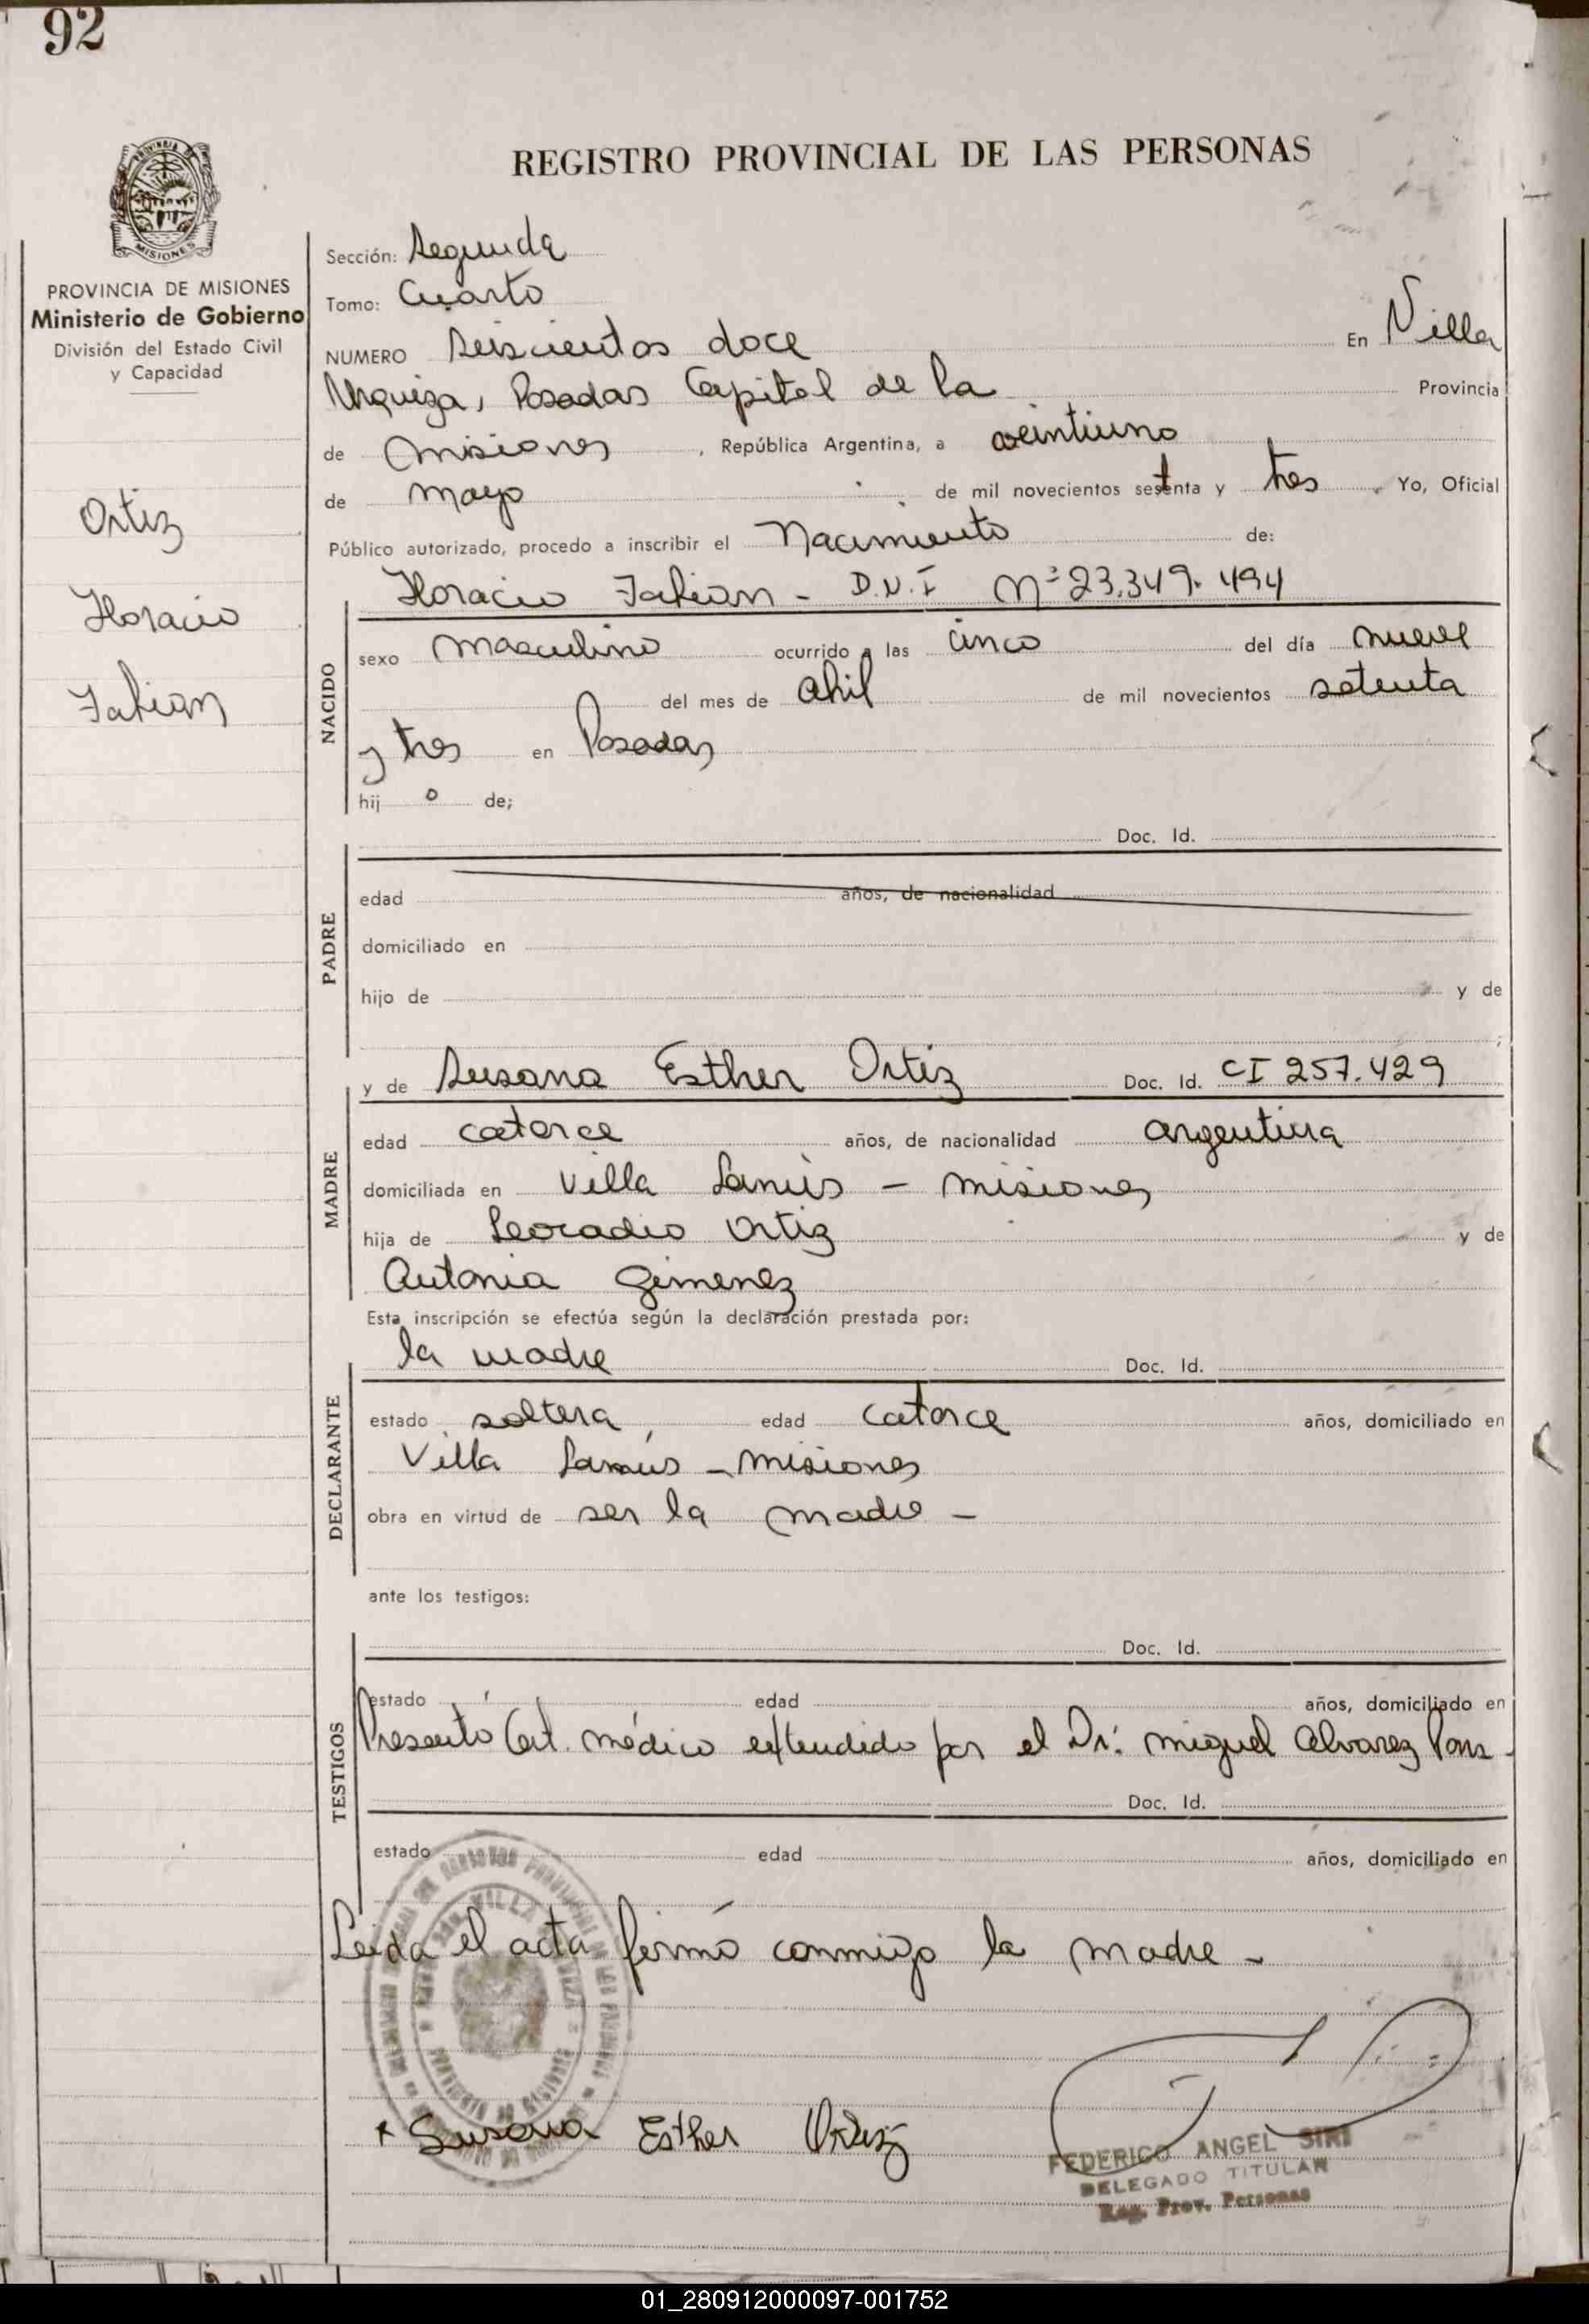 92
REGISTRO PROVINCIAL DE LAS PERSONAS
MISIONES
PROVINCIA DE MISIONES
Ministerio de Gobierno
División del Estado Civil
y Capacidad
Ortiz
Horacio
Fabian
Sección: Segunda
Tomo: Cuarto
NUMERO Seiscientos doce En Villa
Urquiza, Posadas Capital de la Provincia
de Misiones , República Argentina, a veintiuno
de Mayo de mil novecientos setenta y tres . Yo, Oficial
Público autorizado, procedo a inscribir el Nacimiento de:
Horacio Fabian - D.N.I Nº 23.349.494
NACIDO
sexo Masculino ocurrido a las cinco del día nueve
del mes de abril de mil novecientos setenta
y tres en Posadas
hij o de;
Doc. Id.
PADRE
edad años, de nacionalidad
domiciliado en
hijo de y de
;
y de Susana Esther Ortiz Doc. Id. CI 257.429
MADRE
edad catorce años, de nacionalidad argentina
domiciliada en Villa Lanús - Misiones
hija de Leocadio Ortiz y de
Antonia Gimenez
Esta inscripción se efectúa según la declaración prestada por:
la madre Doc. Id.
DECLARANTE
estado soltera edad catorce años, domiciliado en
Villa Lanús - Misiones
obra en virtud de ser la madre -
ante los testigos:
Doc. Id.
TESTIGOS
estado edad años, domiciliado en
Presentó Cert. médico extendido por el Dr: Miguel Alvarez Pons -
Doc. Id.
estado edad años, domiciliado en
Leida el acta firmó conmigo la madre -
Susana Esther Ortiz
FEDERICO ANGEL SIRI
DELEGADO TITULAR
Reg. Prov. Personas
01_280912000097-001752